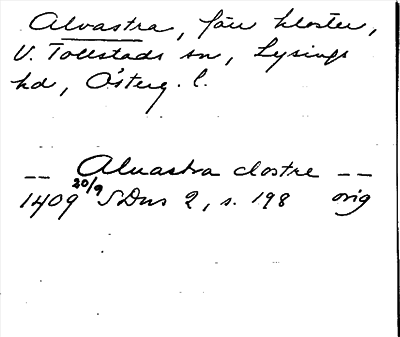 Alvastra, förr kloster,
V. Tollstads sn, Lysings
hd, Österg. l.
-- Alvastra clostre --
1409 20/9 SDns 2, s. 198 orig